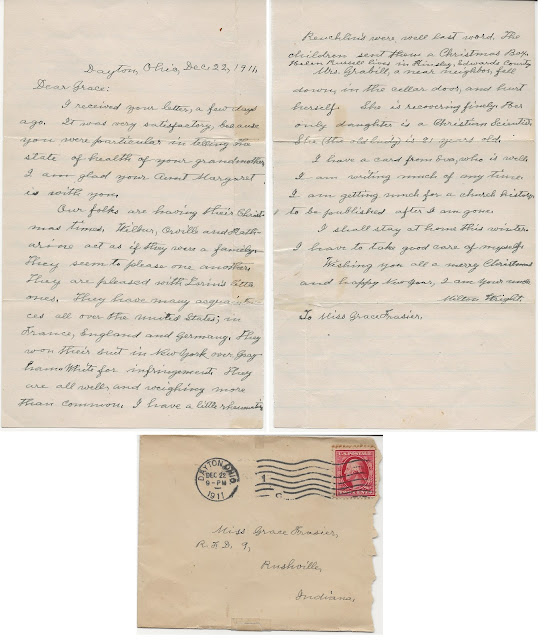 Dayton, Ohio, Dec 22, 1911.
Dear Grace:
I received your letter, a few days
ago. It was very satisfactory, because
you were particular in telling the
state of health of your grandmother.
I am glad your Aunt Margaret
is with you.
Our folks are having their Christ-
mas times. Wilbur, Orville and Kath-
arine act as if they were a family.
They seem to please one another.
They are pleased with Lorin's little
ones. They have many acquaintan-
ces all over the United States; in
France, England and Germany. They
won their suit in New York over Gra-
hame White for infringement. They
are all well and weighing more
than common. I have a little rheumatism
Reuchlin's were well last word. The
children sent them a Christmas Box.
Helen Russell lives in Kinsley, Edwards County
Mrs. Grabill, a near neighbor, fell
down, in the cellar door, and hurt
herself. She is recovering finely. Her
only daughter is a Christian Scientist.
She (the old lady) is 91 years old.
I have a card from who is well.
I am writing much of my time.
I am getting much for a church history,
to be published after I am gone.
I shall stay at home this winter.
I have to take good care of myself.
Wishing you all a merry Christmas
and happy New Year, I am your uncle
Milton Wright.
To Miss Grace Frasier.
DAYTON, OHIO
DEC 22
9-PM
1911
1
U.S. POSTAGE
Miss Grace Frasier,
R.F.D. 9,
Rushville,
Indiana.